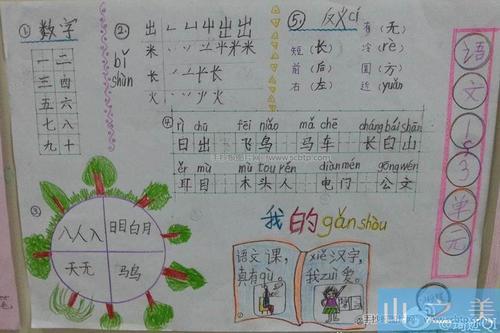 ① 数字
一 二
三 四
五 六
七 八
九 十
② bǐ shùn
出
出 出
米
米 米
长
长 长
火
⑤ 反义cí
有(无)
短(长) 冷(rè)
前(后) 圆(方)
右(左) 近(yuǎn)
语文1~3单元
④ rì chū fēi niǎo mǎ chē cháng bái shān
日出 飞鸟 马车 长白山
ěr mù mù tou rén diàn mén gōng wén
耳目 木头人 电门 公文
③
八人入 日目白月
天无 马鸟
我的gǎn shòu
语文课,
真有qù。
xiě汉字,
我zuì爱。
山之美